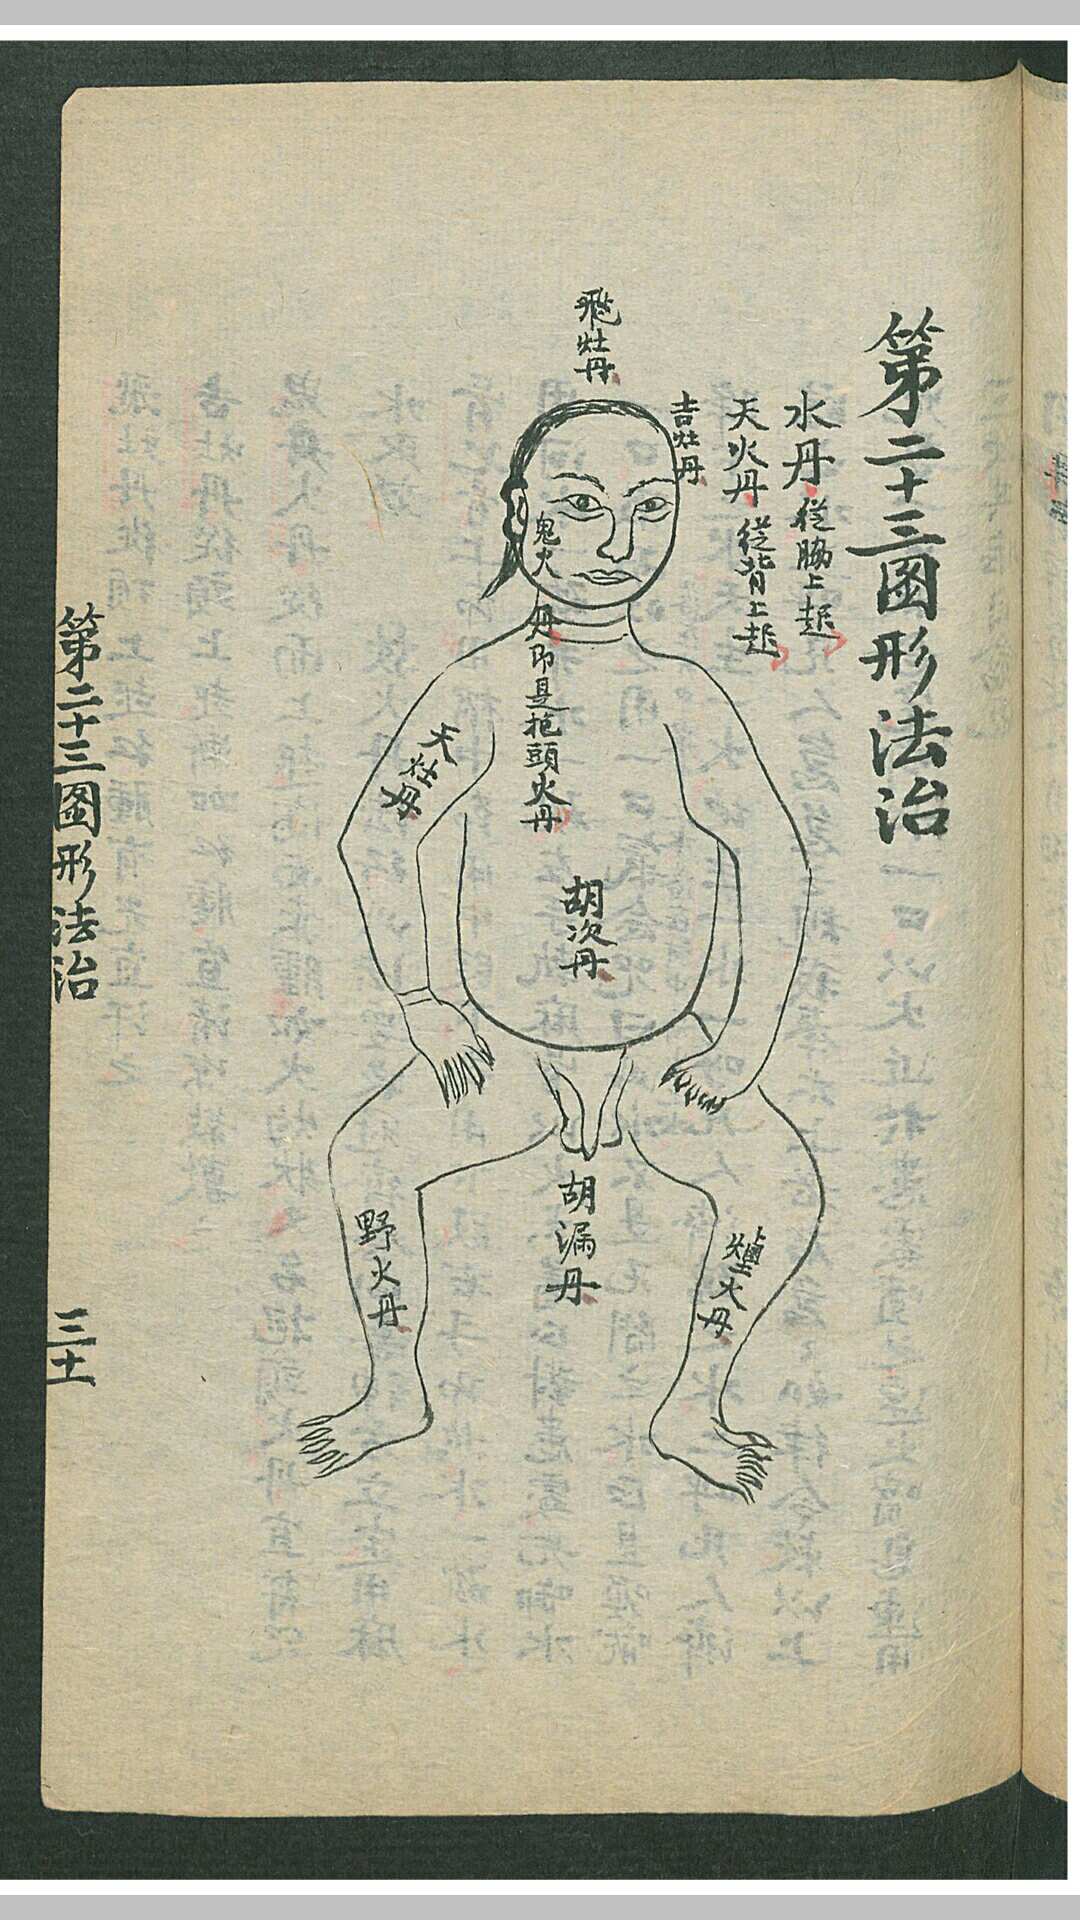 第二十三图形法治
水丹從脇上起
天火丹從背上起
吉灶丹
飛灶丹
鬼火丹即是抱頭火丹
天灶丹
胡次丹
胡漏丹
野火丹
火丹
第二十三图形法治
三十